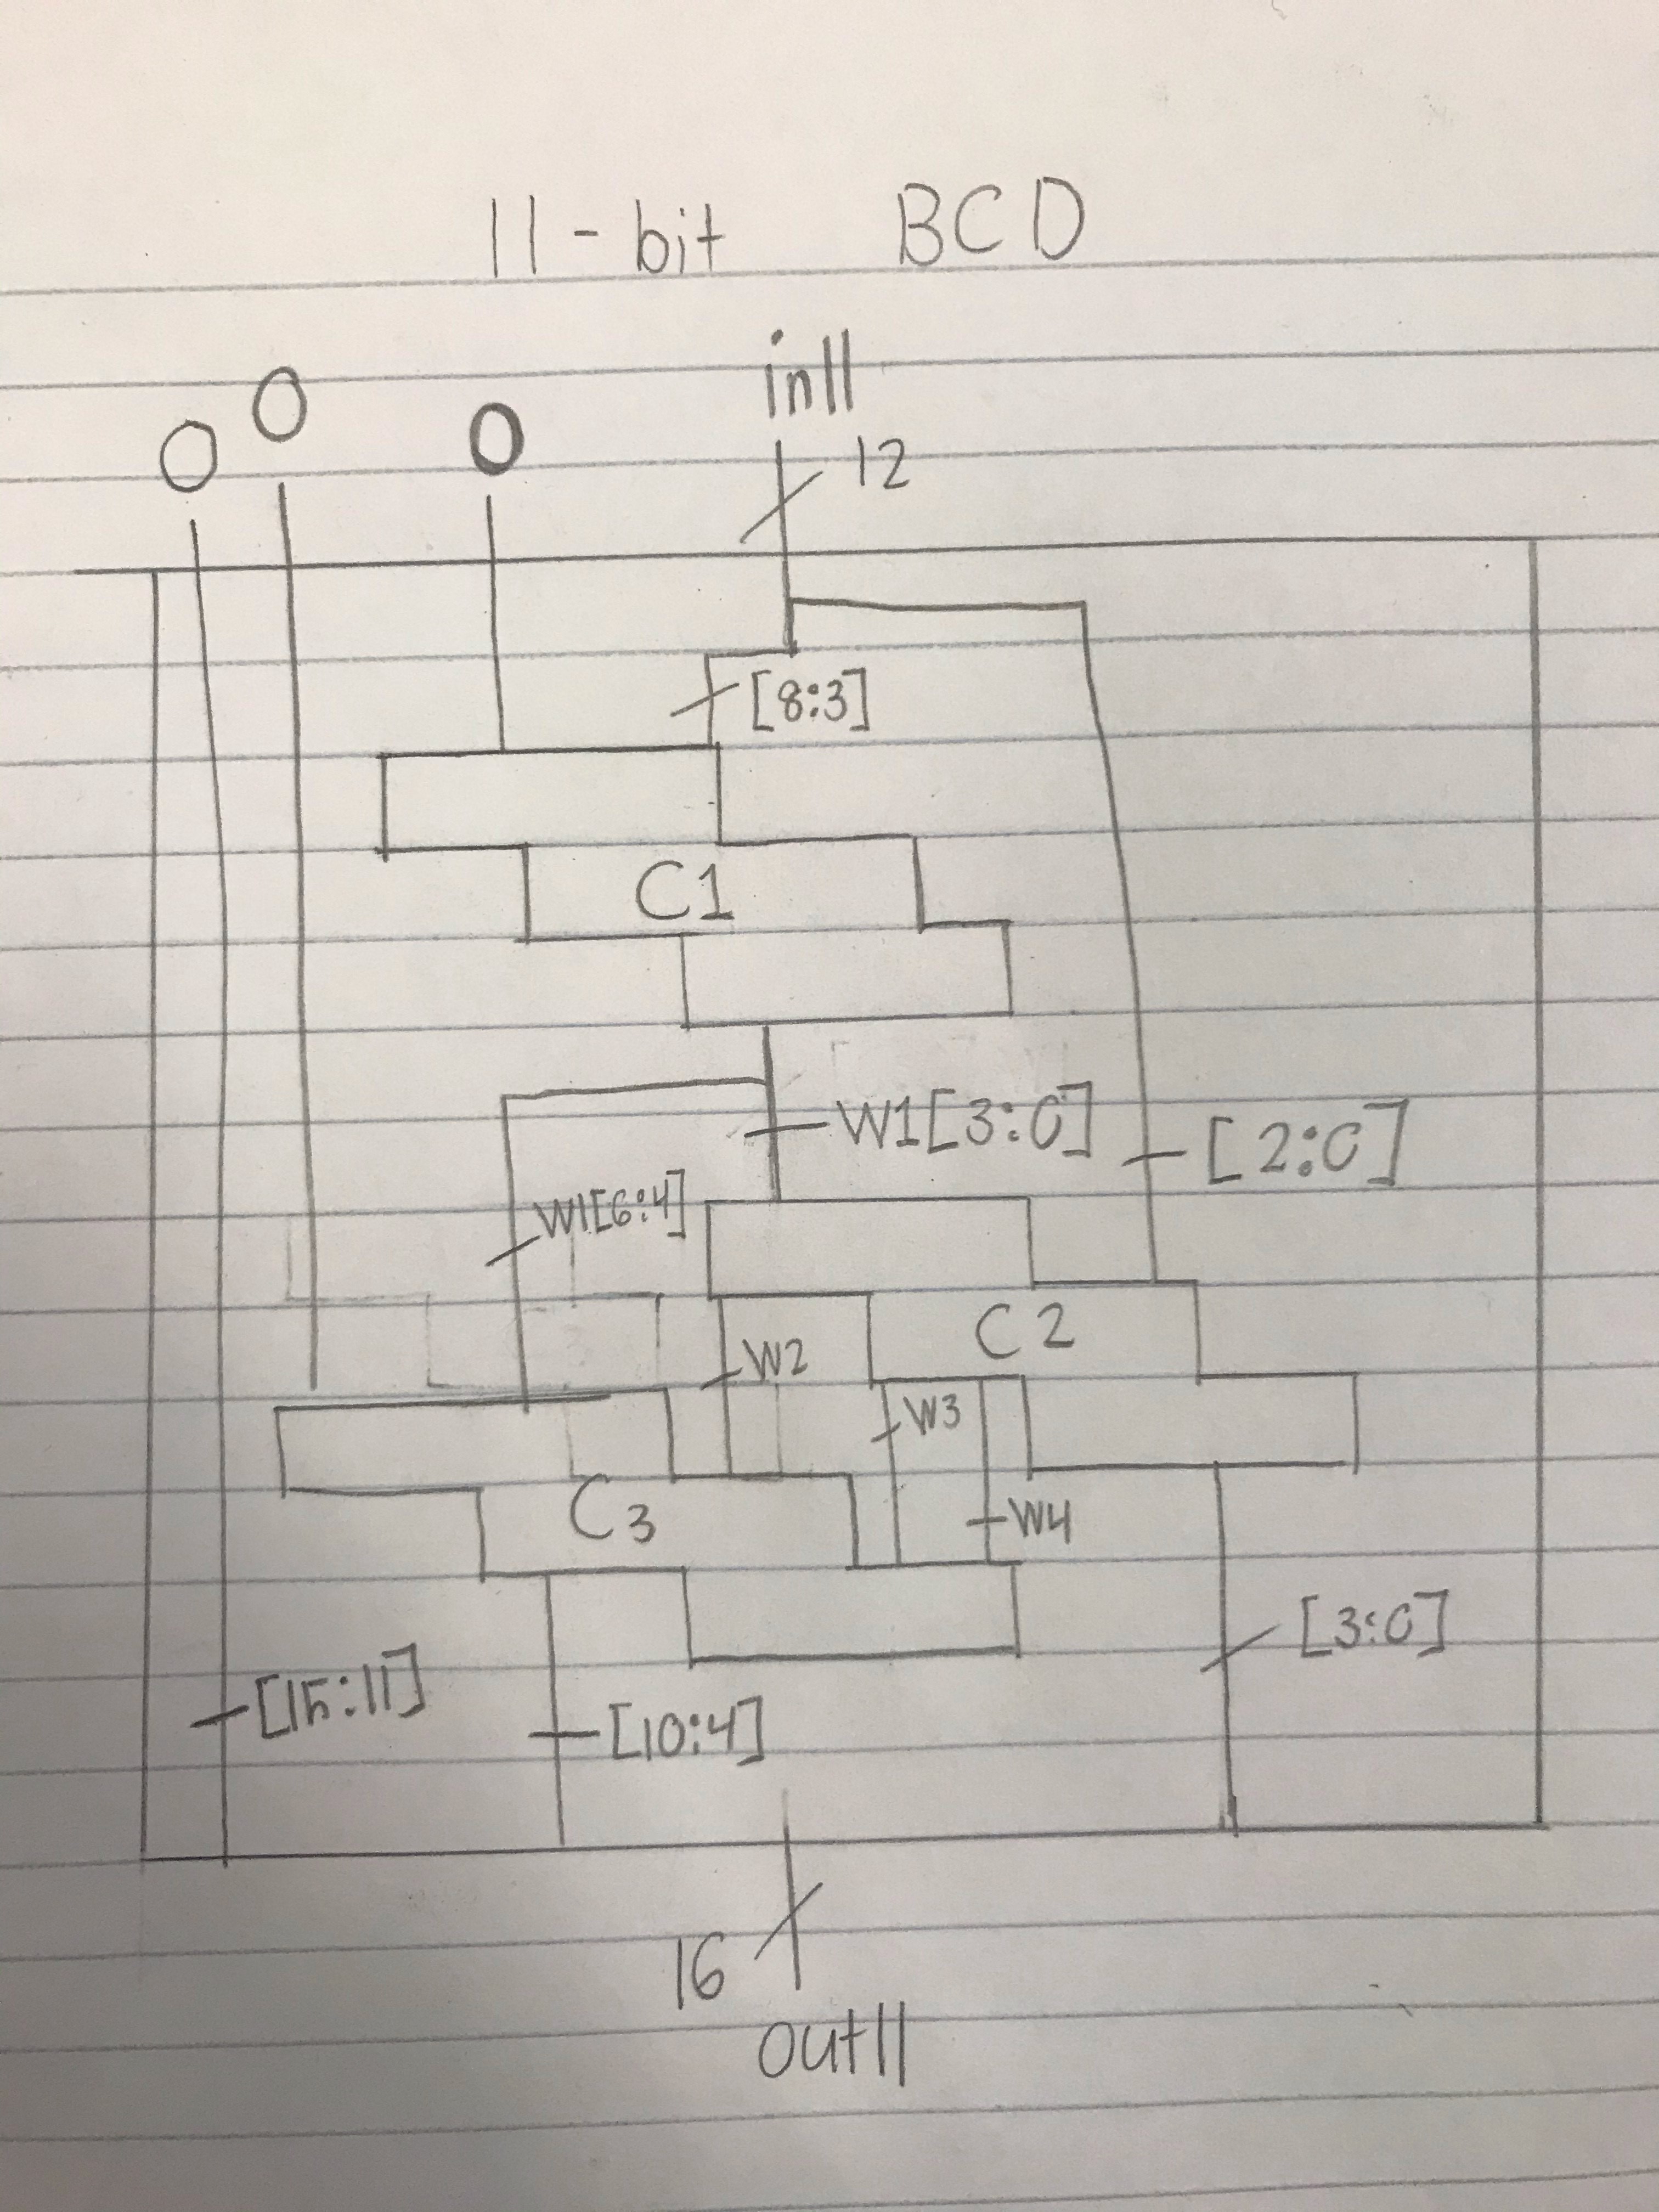 11-bit BCD
in11
0 0 0
12
[8:3]
C1
W1[3:0]
[2:0]
W1[6:4]
C2
W2
W3
C3
W4
[3:0]
[15:11]
[10:4]
16
out11